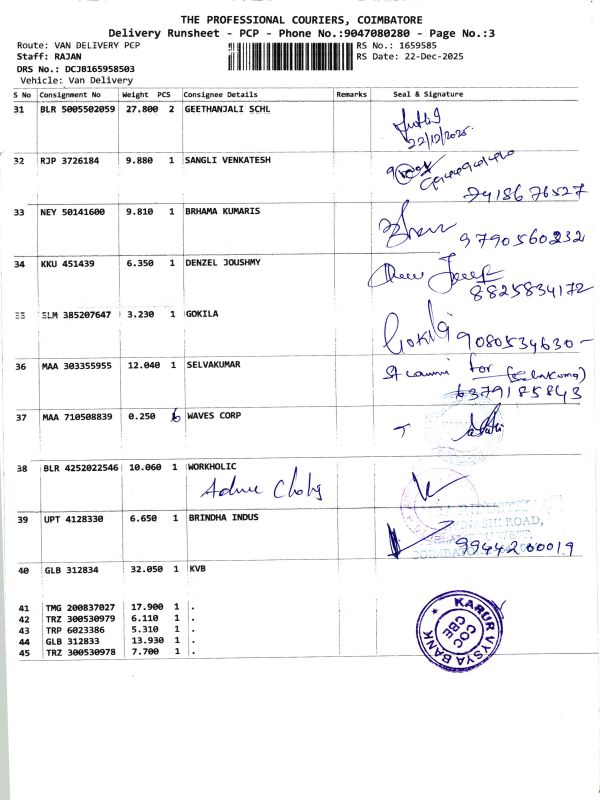 THE PROFESSIONAL COURIERS, COIMBATORE
Delivery Runsheet - PCP - Phone No.:9047080280 - Page No.:3
Route: VAN DELIVERY PCP RS No.: 1659585
Staff: RAJAN RS Date: 22-Dec-2025
DRS No.: DCJB165958503
Vehicle: Van Delivery
S No Consignment No Weight PCS Consignee Details Remarks Seal & Signature
31 BLR 5005502059 27.800 2 GEETHANJALI SCHL
22/12/2025.
32 RJP 3726184 9.880 1 SANGLI VENKATESH
7418676527
33 NEY 50141600 9.810 1 BRHAMA KUMARIS
9790560232
34 KKU 451439 6.350 1 DENZEL JOUSHMY
8825834172
35 SLM 385207647 3.230 1 GOKILA
Gokila 9080534630-
36 MAA 303355955 12.040 1 SELVAKUMAR
for (Selvakumar)
6379185843
37 MAA 710508839 0.250 WAVES CORP
38 BLR 4252022546 10.060 1 WORKHOLIC
39 UPT 4128330 6.650 1 BRINDHA INDUS
ROAD,
9944200019
40 GLB 312834 32.050 1 KVB
41 TMG 200837027 17.900 1 .
42 TRZ 300530979 6.110 1 .
43 TRP 6023386 5.310 1 .
44 GLB 312833 13.930 1 .
45 TRZ 300530978 7.700 1 .
KARUR VYSYA BANK
COC
CBE